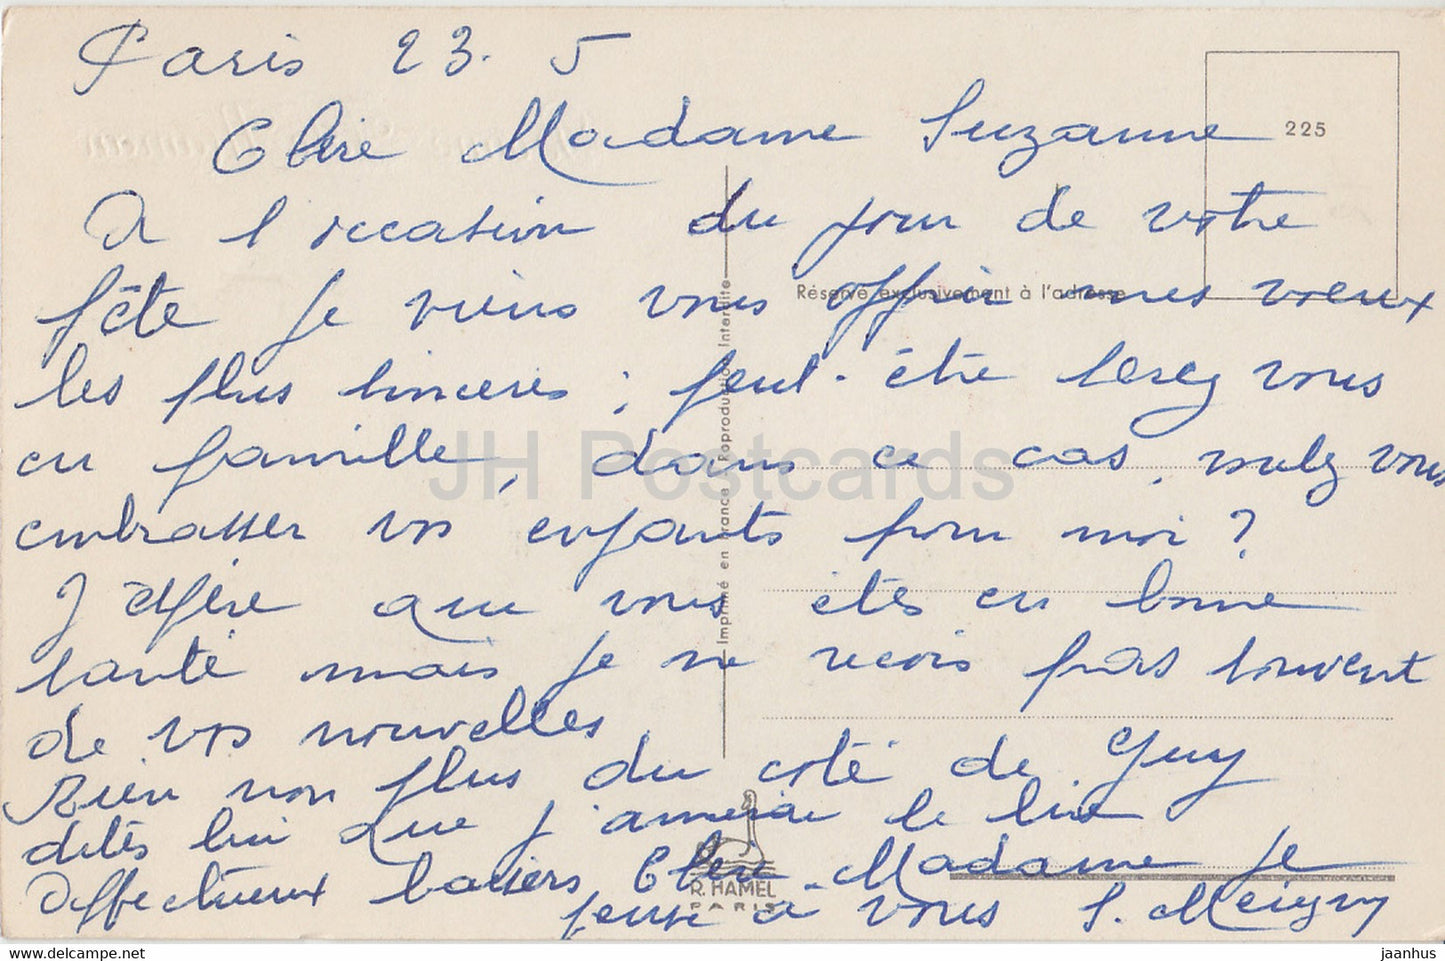 Paris 23. 5
Chère Madame Suzanne
225
A l'occasion du jour de votre
fête je viens vous offrir mes vœux
Réservé exclusivement à l'adresse
les plus sincères ; peut-être serez vous
en famille, dans ce cas, voulez vous
embrasser vos enfants pour moi ?
J'espère que vous êtes en bonne
santé mais je ne reçois pas souvent
de vos nouvelles
Rien non plus du côté de Guy
dites lui que j'aimerai le lire
Affectueux baisers Chère Madame je
pense à vous S. Meigny
Imprimé en France Reproduction Interdite
R. HAMEL
PARIS
JH Postcards
hipstamp.com
jaanhus